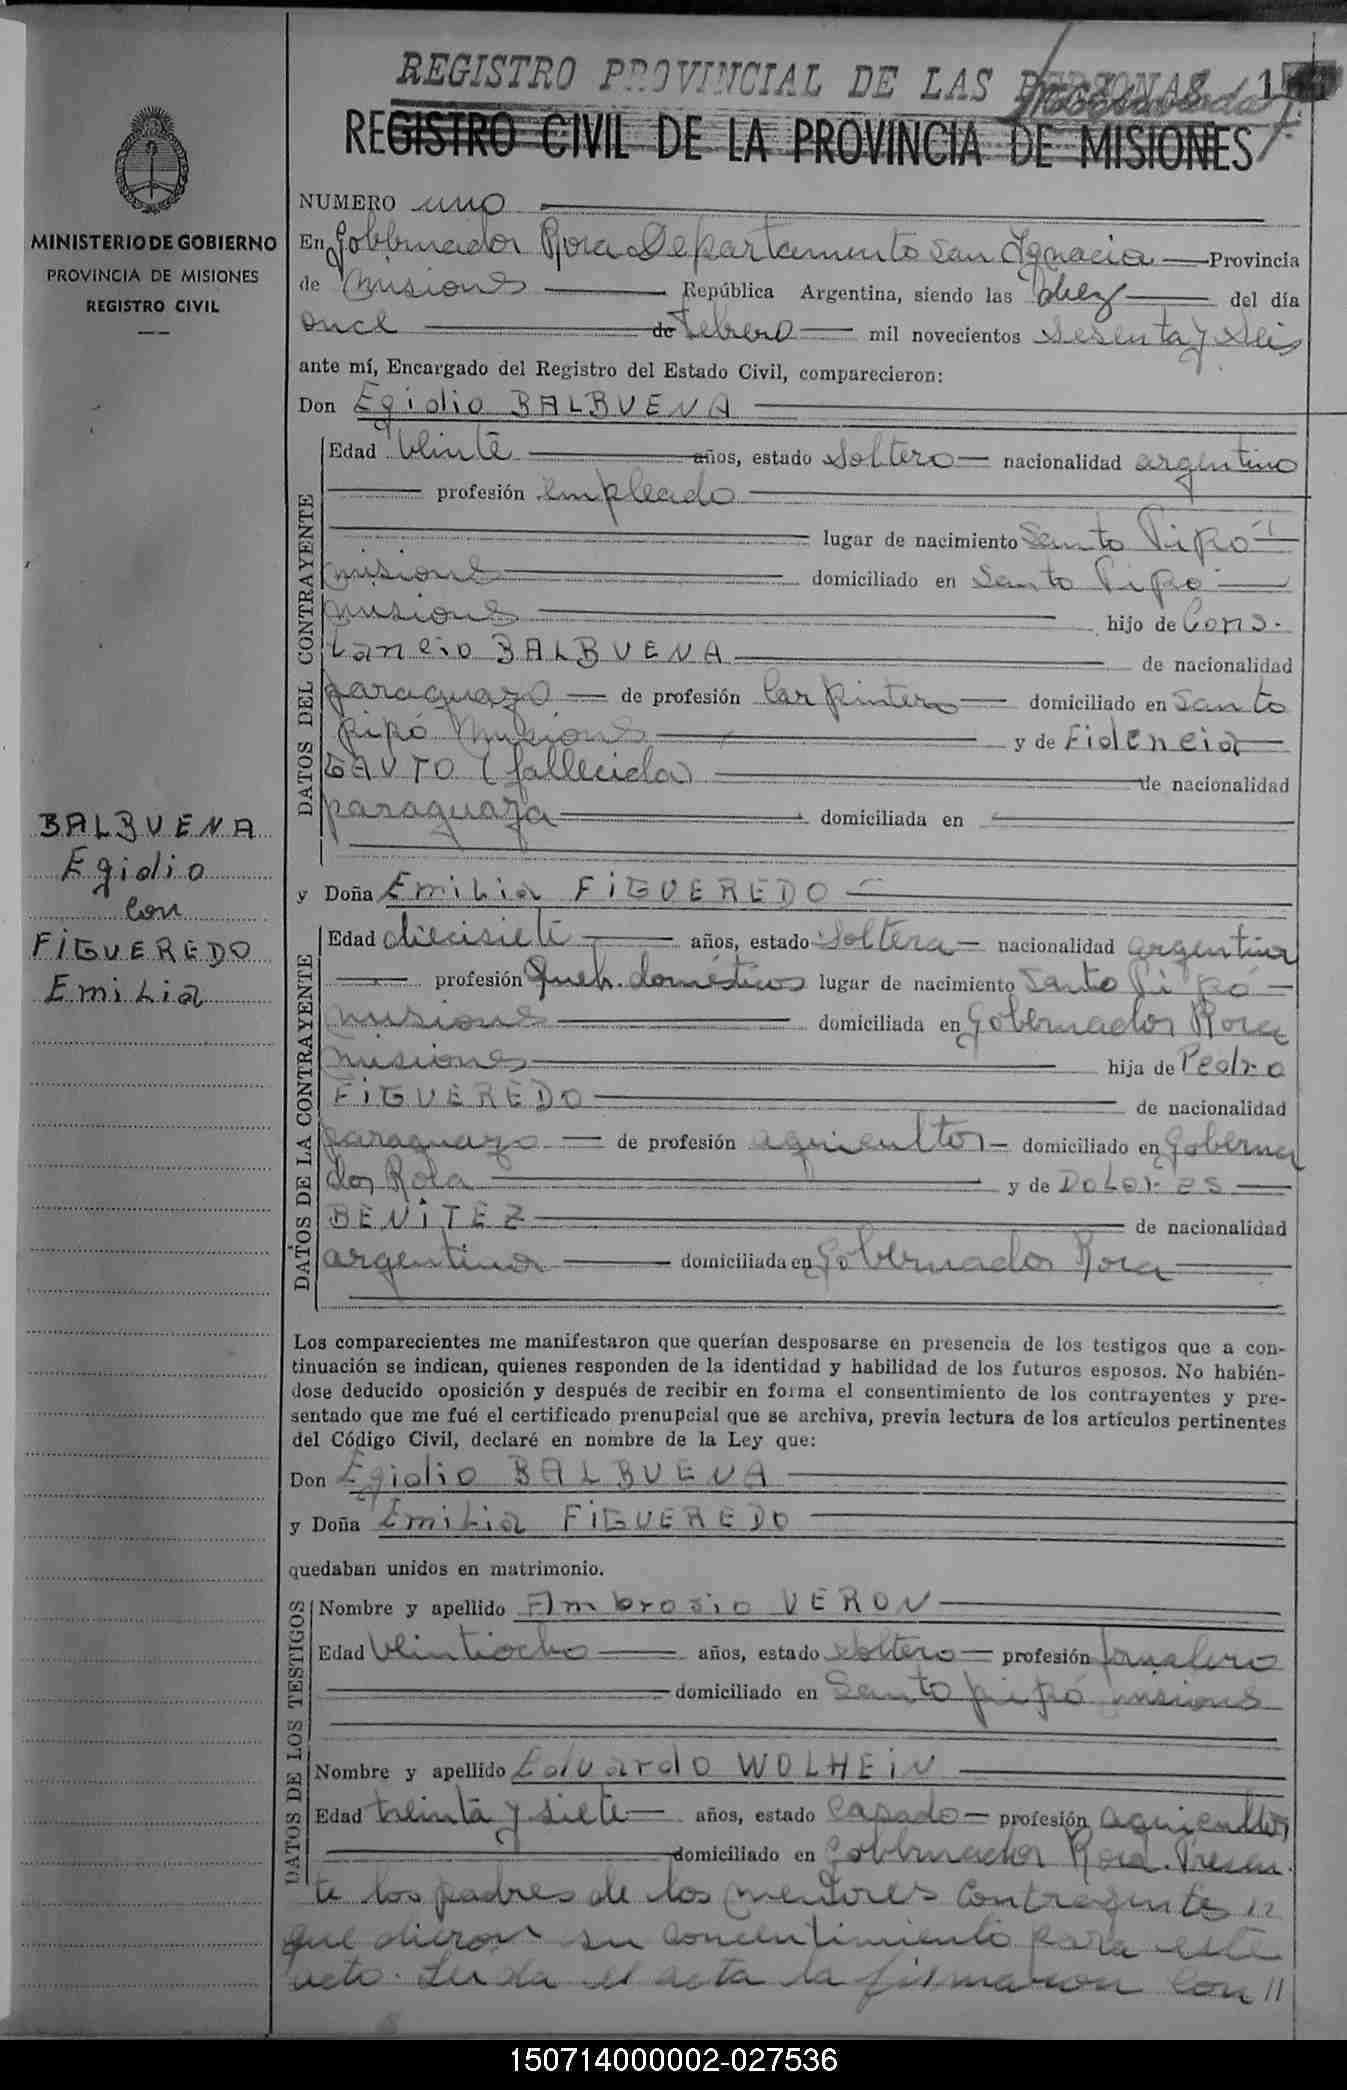 REGISTRO PROVINCIAL DE LAS PERSONAS 1
REGISTRO CIVIL DE LA PROVINCIA DE MISIONES
MINISTERIO DE GOBIERNO
PROVINCIA DE MISIONES
REGISTRO CIVIL
BALBUENA
Egidio
con
FiGUEREDO
Emilia
NUMERO uno
En Gobernador Roca Departamento San Ignacio Provincia
de Misiones República Argentina, siendo las diez del día
once de Febrero mil novecientos sesenta y seis
ante mí, Encargado del Registro del Estado Civil, comparecieron:
Don Egidio BALBUENA
DATOS DEL CONTRAYENTE
Edad veinte años, estado soltero nacionalidad argentino
profesión empleado
lugar de nacimiento Santo Pipó
misiones domiciliado en Santo Pipo
misiones hijo de Cons.
tancio BALBUENA de nacionalidad
paraguayo de profesión Carpintero domiciliado en Santo
pipó Misiones y de Fidencia
GAUTO (fallecida) de nacionalidad
paraguaya domiciliada en
y Doña Emilia FiGUEREDO
DATOS DE LA CONTRAYENTE
Edad diecisiete años, estado soltera nacionalidad argentina
profesión Queh. domésticos lugar de nacimiento Santo Pipó
misiones domiciliada en Gobernador Roca
misiones hija de Pedro
FiGUEREDO de nacionalidad
paraguayo de profesión agricultor domiciliado en Goberna
dor Roca y de DoLores
BENiTEZ de nacionalidad
argentina domiciliada en Gobernador Roca
Los comparecientes me manifestaron que querían desposarse en presencia de los testigos que a con-
tinuación se indican, quienes responden de la identidad y habilidad de los futuros esposos. No habién-
dose deducido oposición y después de recibir en forma el consentimiento de los contrayentes y pre-
sentado que me fué el certificado prenupcial que se archiva, previa lectura de los artículos pertinentes
del Código Civil, declaré en nombre de la Ley que:
Don Egidio BALBUENA
y Doña Emilia FiGUEREDO
quedaban unidos en matrimonio.
DATOS DE LOS TESTIGOS
Nombre y apellido Ambrosio VERON
Edad veintiocho años, estado soltero profesión jornalero
domiciliado en Santo pipó misiones
Nombre y apellido Eduardo WOLHEiN
Edad treinta y siete años, estado casado profesión agricultor
domiciliado en Gobernador Roca. Presen.
te los padres de los menores contrayentes //
que dieron su concentimiento para este
acto. Leida el acta la firmaron con //
150714000002-027536